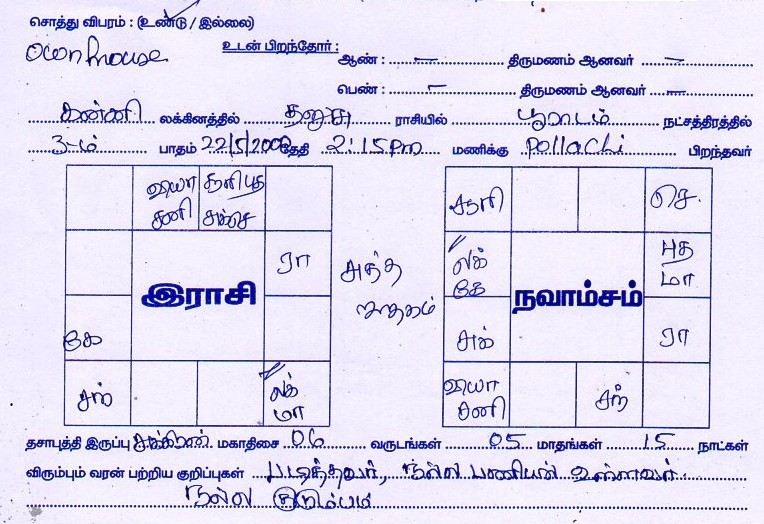 சொத்து விபரம் : (உண்டு / இல்லை)
own house உடன் பிறந்தோர் : ஆண் : – திருமணம் ஆனவர் –
பெண் : – திருமணம் ஆனவர் –
கன்னி லக்கினத்தில் தனுசு ராசியில் பூராடம் நட்சத்திரத்தில்
3-ம் பாதம் 22/5/2000 தேதி 2:15pm மணிக்கு pollachi பிறந்தவர்
வியா சனி
சூரி புத சுக் செ
ரா
இராசி
கே
சந்
லக் மா
சுத்த ஜாதகம்
சூரி
செ.
லக் கே
புத மா
நவாம்சம்
சுக்
ரா
வியா சனி
சந்
தசாபுத்தி இருப்பு சுக்கிரன் மகாதிசை 06 வருடங்கள் 05 மாதங்கள் 15 நாட்கள்
விரும்பும் வரன் பற்றிய குறிப்புகள் படித்தவர், நல்ல பணியில் உள்ளவர்
நல்ல குடும்பம்